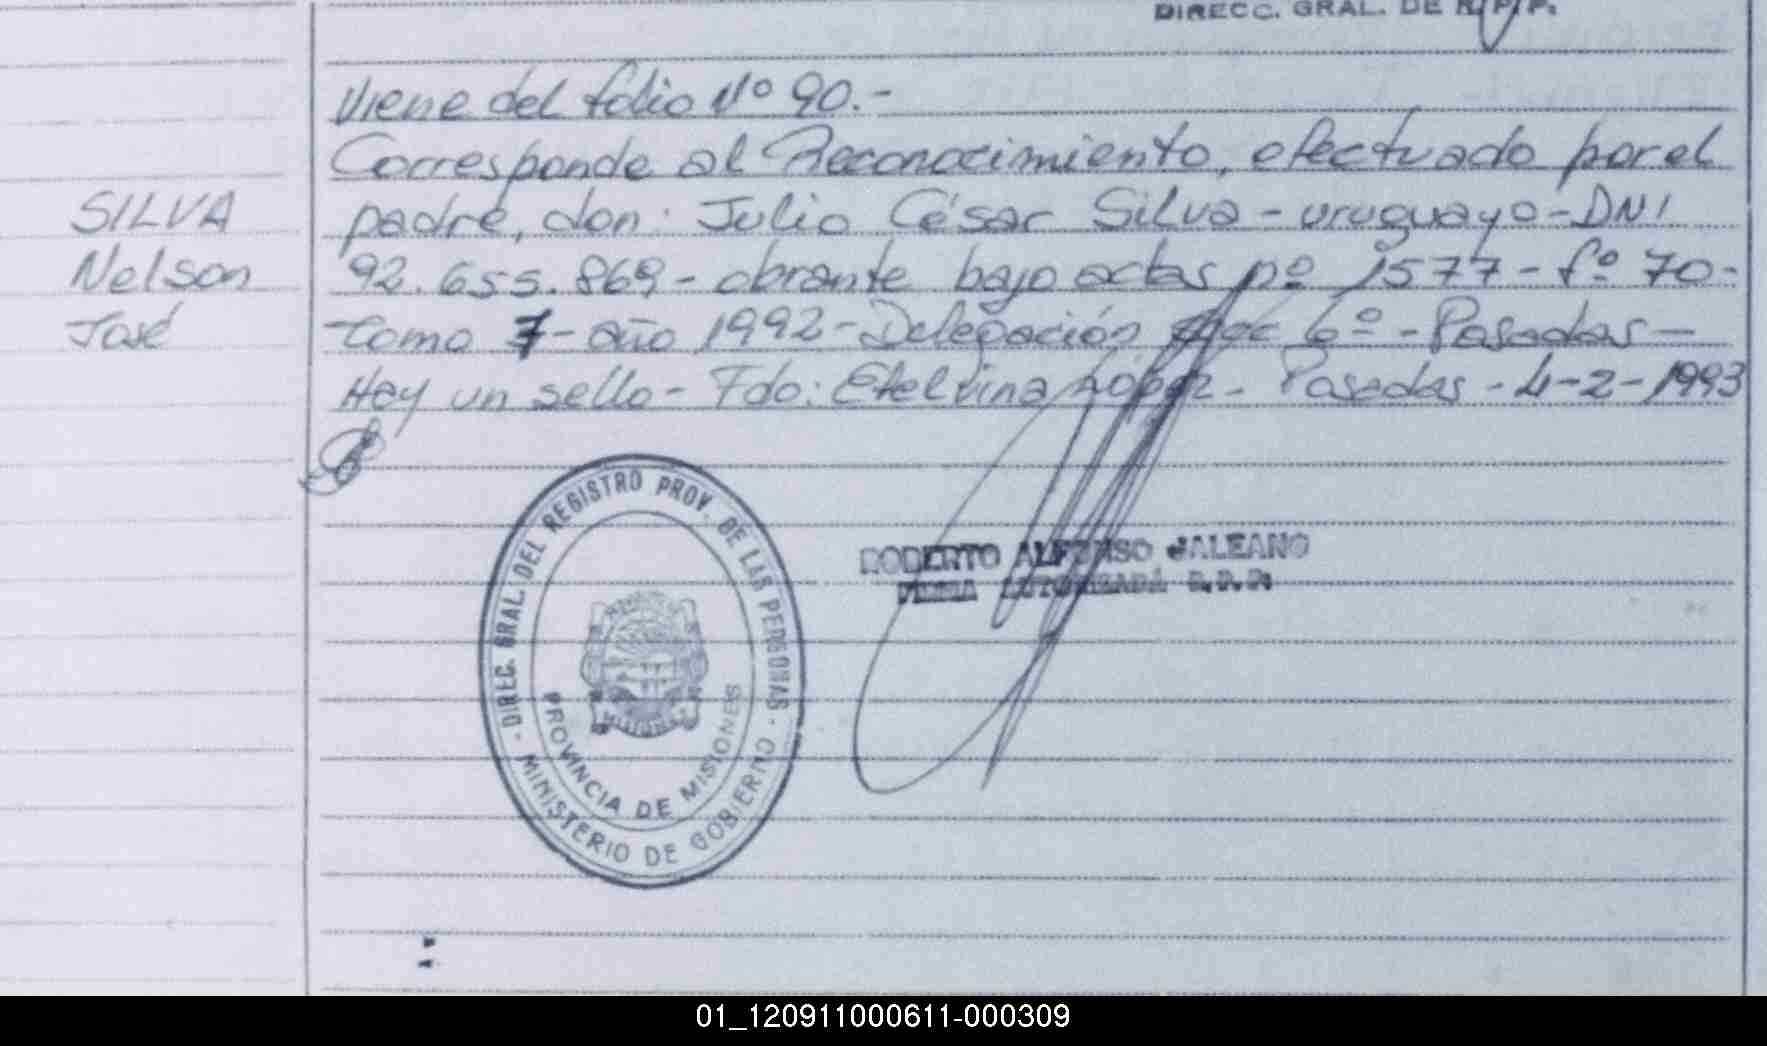 DIRECC. GRAL. DE R.P.P.
Viene del folio Nº 90.-
Corresponde al Reconocimiento, efectuado por el
padre, don: Julio César Silva - uruguayo - DNI
92.655.869 - obrante bajo actas nº 1577 - fº 70 -
tomo 7 - año 1992 - Delegación 6º - Posadas -
Hay un sello - Fdo: Etelvina López - Posadas - 4-2-1993
SILVA
Nelson
José
DIREC. GRAL. DEL REGISTRO PROV. DE LAS PERSONAS
- MINISTERIO DE GOBIERNO -
PROVINCIA DE MISIONES
ROBERTO ALFONSO GALEANO
FIRMA AUTORIZADA R.P.P.
01_120911000611-000309